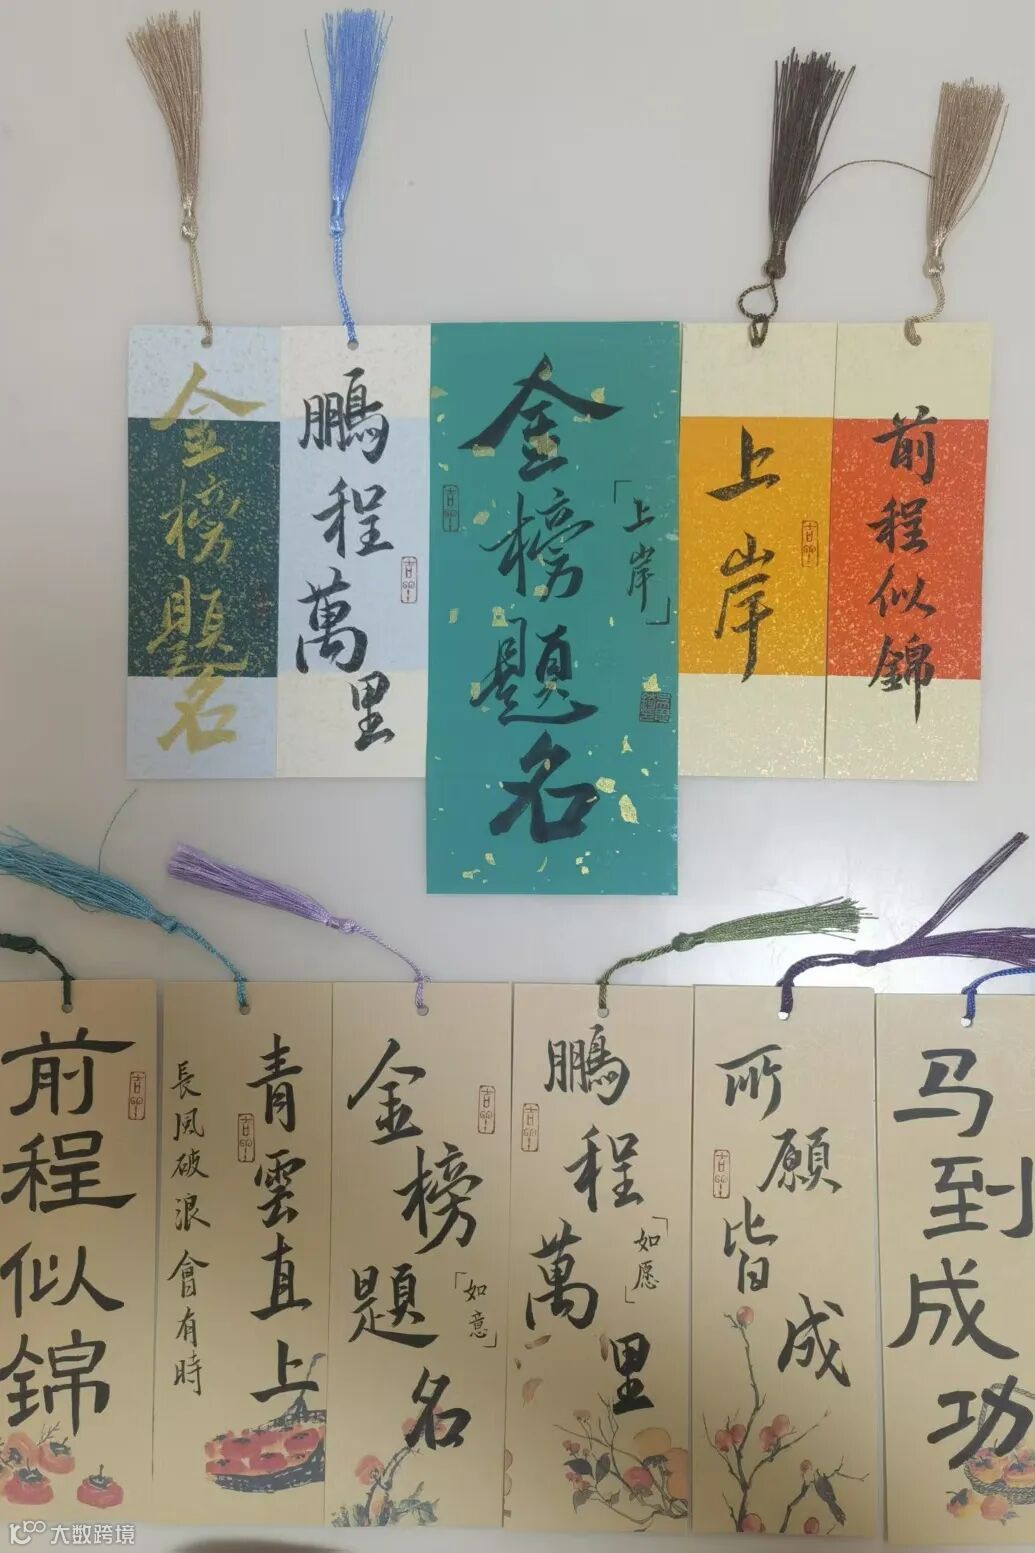 金榜题名
鹏程萬里
金榜题名
「上岸」
上岸
前程似锦
前程似錦
青雲直上
長风破浪會有時
金榜題名
「如意」
鹏程萬里
「如愿」
所願皆成
马到成功
大数跨境